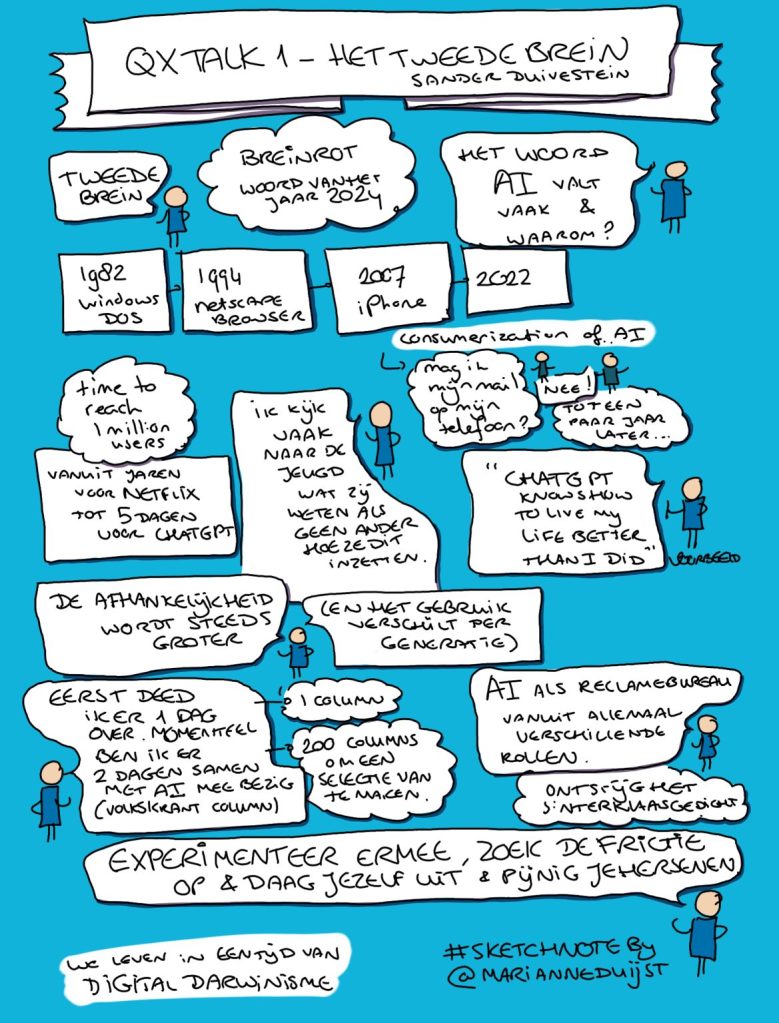 QX TALK 1 - HET TWEEDE BREIN
SANDER DUIVESTEIN
TWEEDE
BREIN
BREINROT
WOORD VAN HET
JAAR 2024
HET WOORD
AI VALT
VAAK &
WAAROM?
1982
WINDOWS
DOS
1994
NETSCAPE
BROWSER
2007
iPhone
2022
Consumerization of AI
mag ik
mijn mail
op mijn
telefoon?
NEE!
TOT EEN
PAAR JAAR
LATER...
time to
reach
1 million
users
VANUIT JAREN
VOOR NETFLIX
TOT 5 DAGEN
VOOR CHATGPT
IK KIJK
VAAK
NAAR DE
JEUGD
WAT ZIJ
WETEN ALS
GEEN ANDER
HOE ZE DIT
INZETTEN.
"CHATGPT
KNOWS HOW
TO LIVE MY
LIFE BETTER
THAN I DID"
VOORBEELD
DE AFHANKELIJKHEID
WORDT STEEDS
GROTER
(EN HET GEBRUIK
VERSCHILT PER
GENERATIE)
EERST DEED
IK ER 1 DAG
OVER. MOMENTEEL
BEN IK ER
2 DAGEN SAMEN
MET AI MEE BEZIG
(VOLKSKRANT COLUMN)
1 COLUMN
200 COLUMNS
OM EEN
SELECTIE VAN
TE MAKEN.
AI ALS RECLAMEBUREAU
VANUIT ALLEMAAL
VERSCHILLENDE
ROLLEN.
ONTSTIJG HET
SINTERKLAASGEDICHT
EXPERIMENTEER ERMEE, ZOEK DE FRICTIE
OP & DAAG JEZELF UIT & PIJNIG JE HERSENEN
WE LEVEN IN EEN TIJD VAN
DIGITAL DARWINISME
#SKETCHNOTE BY
@MARIANNEDUIJST